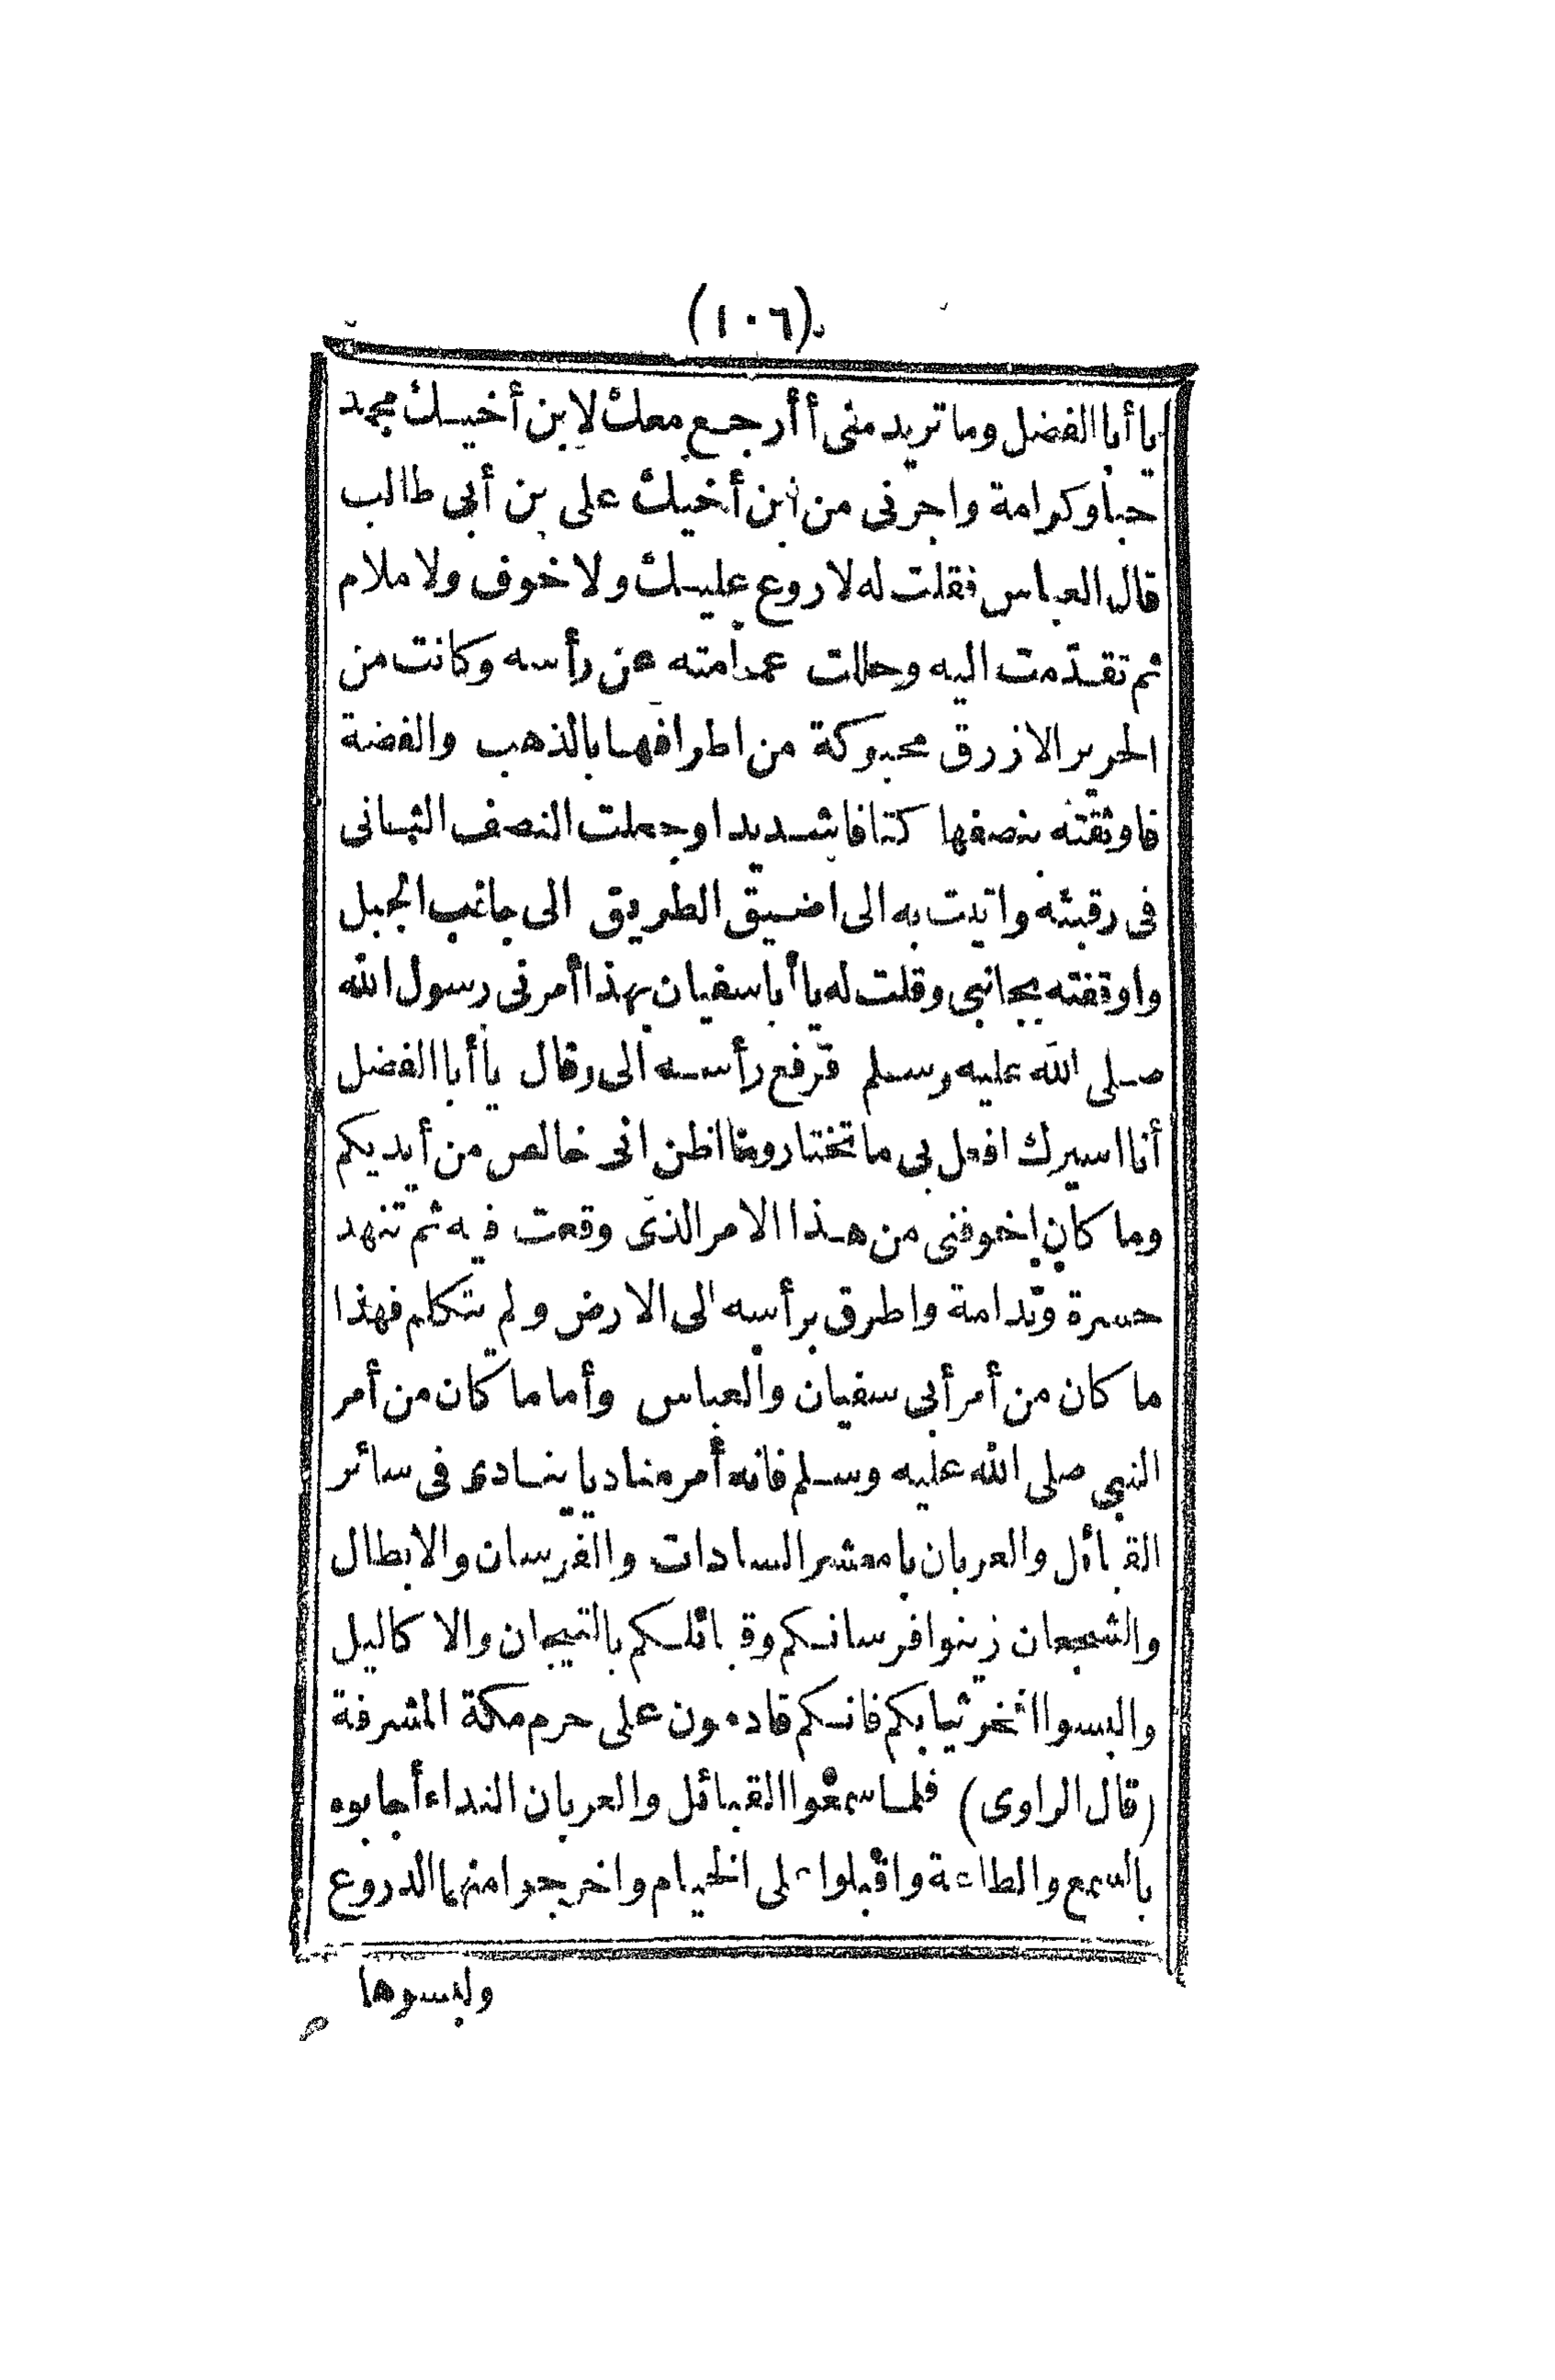 (١٠٦)
يا أبا الفضل وما تريد منى أأرجع معك لابن أخيك محمد
حبا وكرامة واجرنى من ابن أخيك على بن أبى طالب
قال العباس فقلت له لا روع عليك ولا خوف ولا ملام
ثم تقدّمت اليه وحللت عمامته عن رأسه وكانت من
الحرير الازرق محبوكة من اطرافها بالذهب والفضة
فاوثقته بنصفها كتافا شديدا وجعلت النصف الثانى
فى رقبته واتيت به الى اضيق الطريق الى جانب الجبل
واوقفته بجانبى وقلت له يا أبا سفيان بهذا أمرنى رسول الله
صلى الله عليه وسلم فرفع رأسه الى وقال يا أبا الفضل
أنا اسيرك افعل بى ما تختار وما اظن انى خالص من أيديكم
وما كان اخوفنى من هذا الامر الذى وقعت فيه ثم تنهد
حسرة وندامة واطرق برأسه الى الارض ولم يتكلم فهذا
ما كان من أمر أبى سفيان والعباس وأما ما كان من أمر
النبى صلى الله عليه وسلم فانه أمر مناديا ينادى فى سائر
القبائل والعربان يا معشر السادات والفرسان والابطال
والشجعان زينوا فرسانكم وقبائلكم بالتيجان والاكاليل
والبسوا افخر ثيابكم فانكم قادمون على حرم مكة المشرفة
(قال الراوى) فلما سمعوا القبائل والعربان النداء أجابوه
بالسمع والطاعة واقبلوا على الخيام واخرجوا منها الدروع
ولبسوها